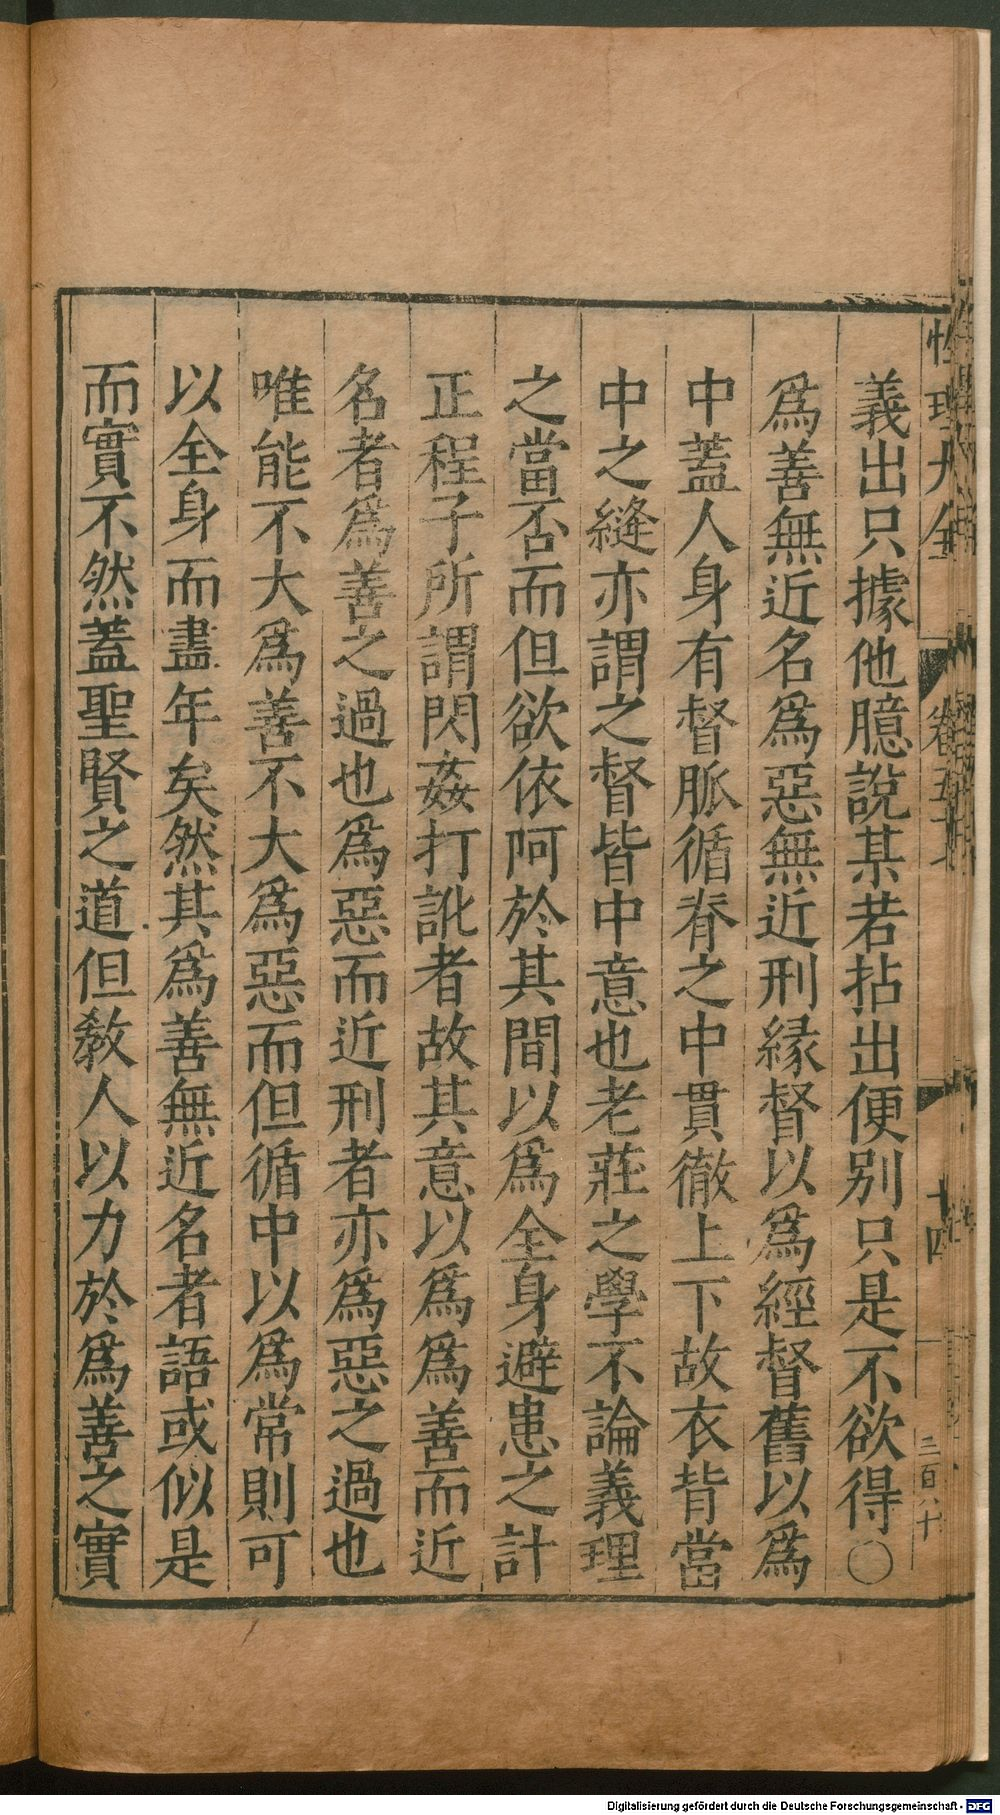 性理大全 卷五十 十四 三百八十
義出只據他臆說某若拈出便别只是不欲得〇
爲善無近名爲惡無近刑縁督以爲經督舊以爲
中蓋人身有督脈循脊之中貫徹上下故衣背當
中之縫亦謂之督皆中意也老莊之學不論義理
之當否而但欲依阿於其間以爲全身避患之計
正程子所謂閃姦打訛者故其意以爲爲善而近
名者爲善之過也爲惡而近刑者亦爲惡之過也
唯能不大爲善不大爲惡而但循中以爲常則可
以全身而盡年矣然其爲善無近名者語或似是
而實不然蓋聖賢之道但敎人以力於爲善之實
Digitalisierung gefördert durch die Deutsche Forschungsgemeinschaft - DFG